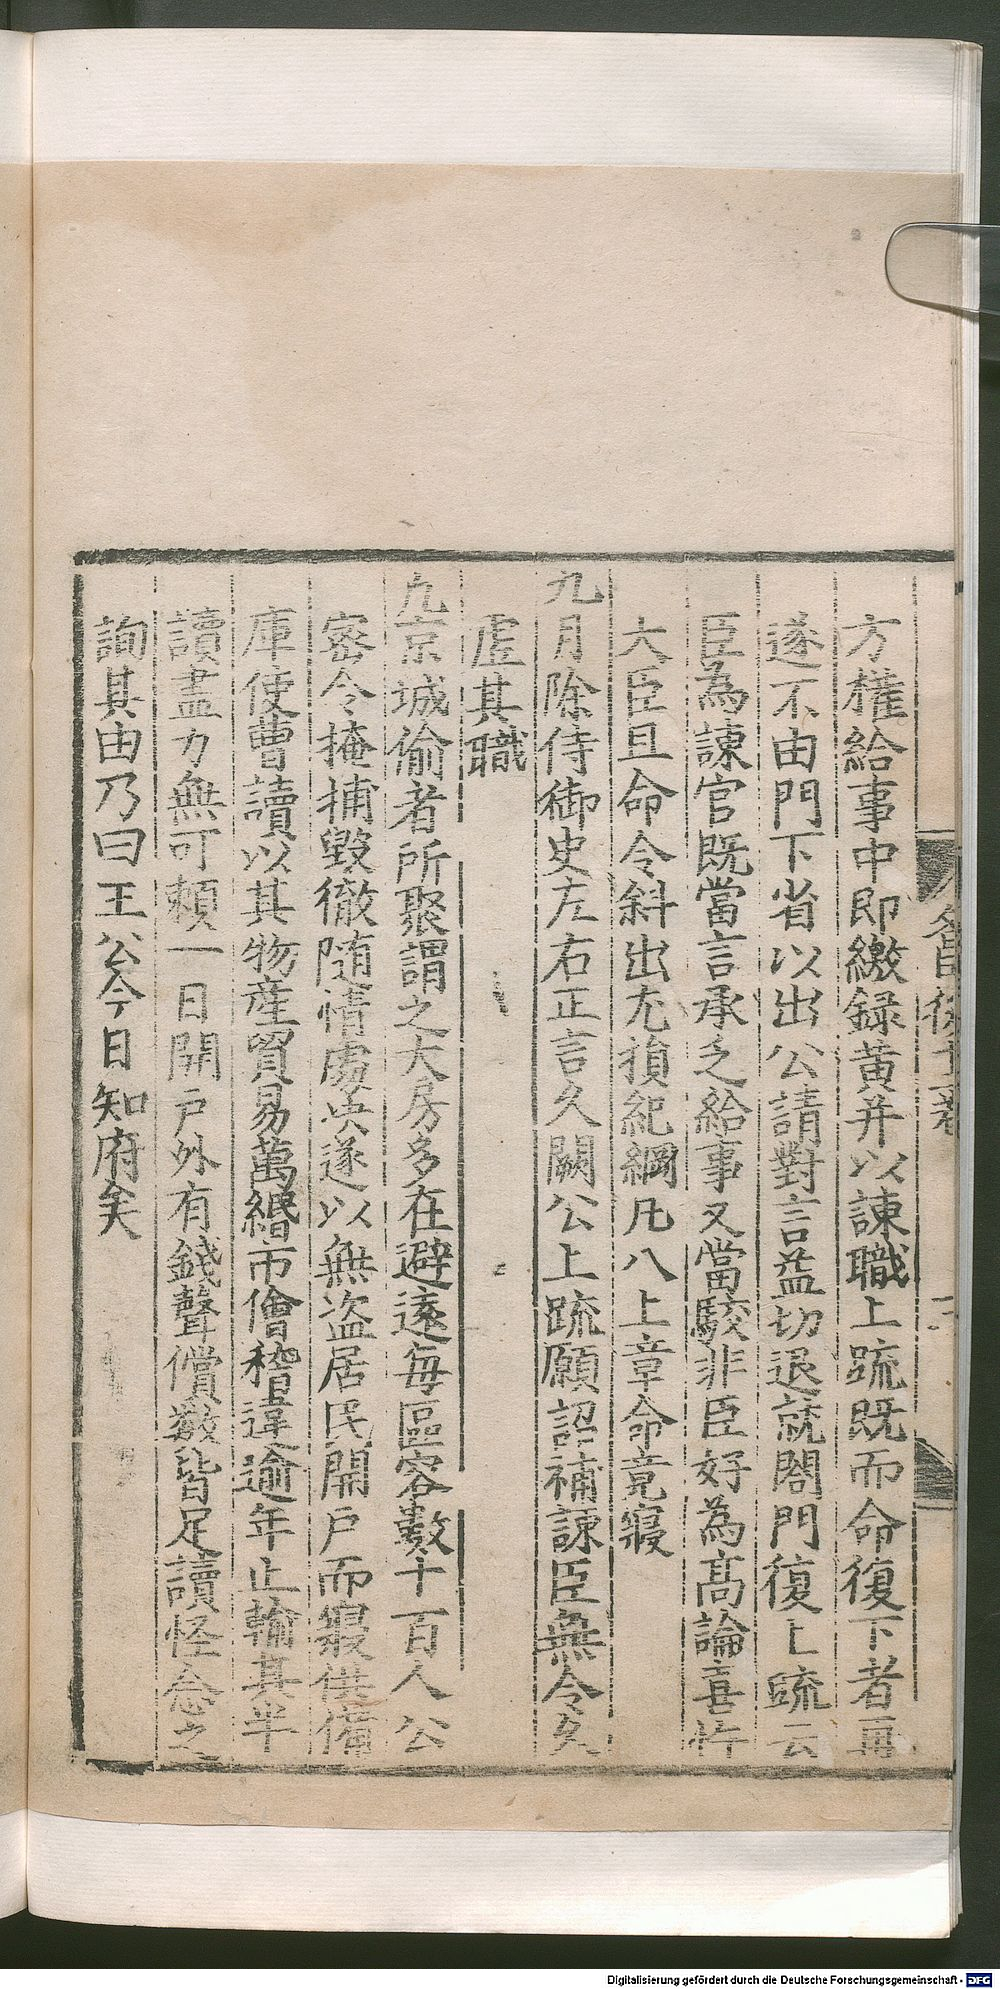 方權給事中即繳録黄并以諫職上疏既而命復下者再
遂不由門下省以出公請對言益切退就閤門復上疏云
臣為諫官既當言承乏給事又當駮非臣好為高論喜忤
大臣且命令斜出尤損紀綱凡八上章命竟寢
九月除侍御史左右正言久闕公上疏願詔補諫臣無令久
虚其職
九京城偷者所聚謂之大房多在避遠每區容數十百人公
密令掩捕毀徹隨情處央遂以無盗居民開户而寢供備
庫使曹讀以其物産貿易萬緡市儈稽違逾年止輸其半
讀盡力無可頼一日開户外有錢聲償數皆足讀怪念之
詢其由乃曰王公今日知府矣
Digitalisierung gefördert durch die Deutsche Forschungsgemeinschaft - DFG